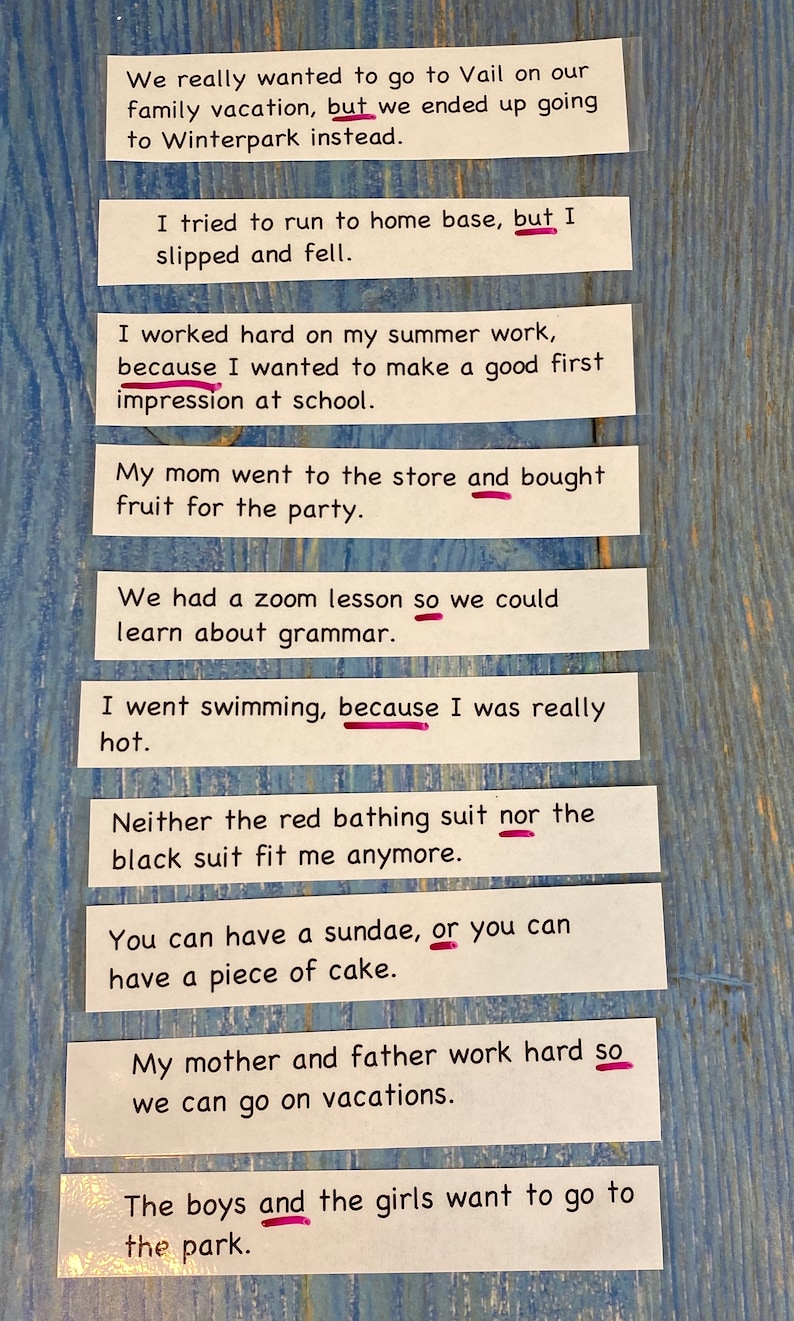 We really wanted to go to Vail on our
family vacation, but we ended up going
to Winterpark instead.
I tried to run to home base, but I
slipped and fell.
I worked hard on my summer work,
because I wanted to make a good first
impression at school.
My mom went to the store and bought
fruit for the party.
We had a zoom lesson so we could
learn about grammar.
I went swimming, because I was really
hot.
Neither the red bathing suit nor the
black suit fit me anymore.
You can have a sundae, or you can
have a piece of cake.
My mother and father work hard so
we can go on vacations.
The boys and the girls want to go to
the park.